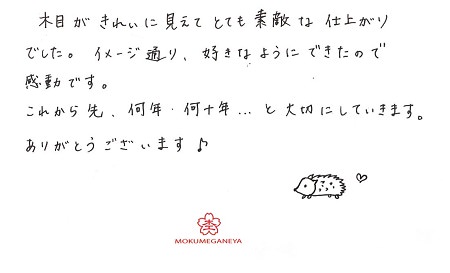 木目がきれいに見えてとても素敵な仕上がり
でした。イメージ通り、好きなようにできたので
感動です。
これから先、何年・何十年…と大切にしていきます。
ありがとうございます♪
MOKUMEGANEYA